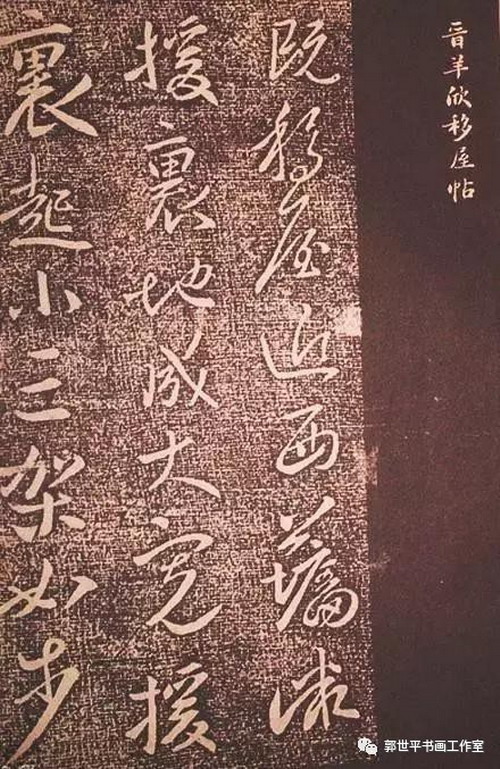 晋羊欣移屋帖
既移屋近西
援裏地成大寬援
裏起小三架如步
郭世平书画工作室